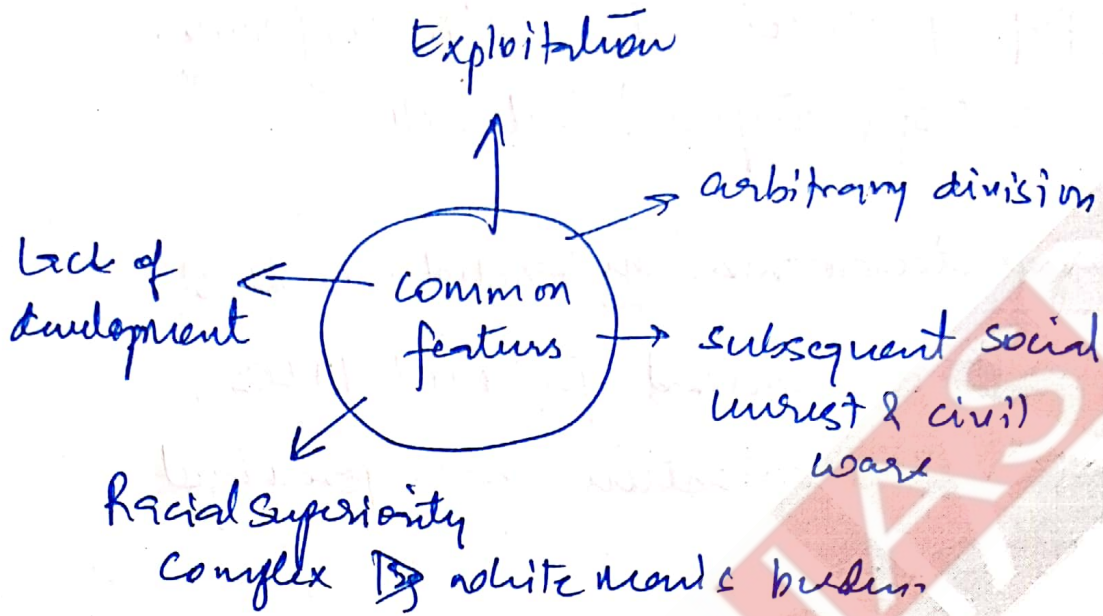 Exploitation
arbitrary division
Lack of
development
common
featurs
subsequent social
unrest & civil
wars
Racial superiority
complex white man's burden
IAS